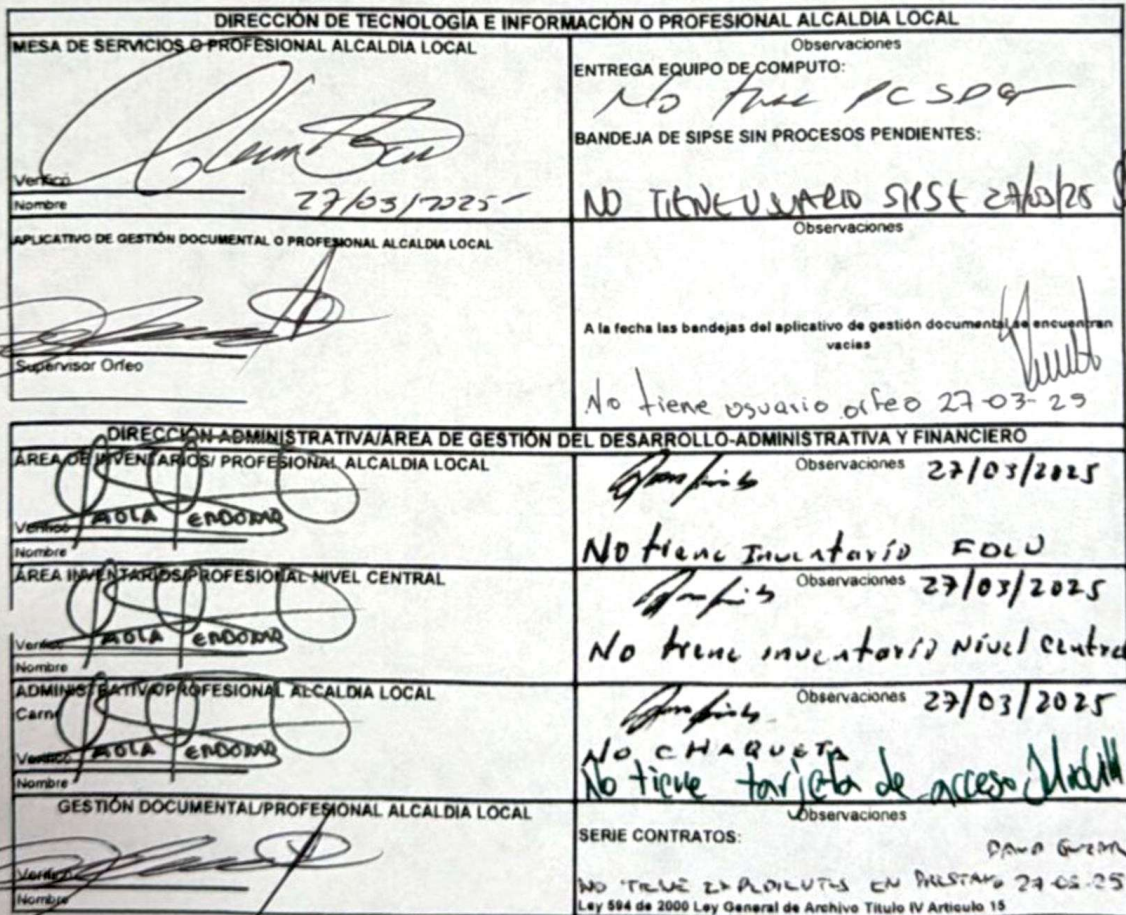 DIRECCIÓN DE TECNOLOGÍA E INFORMACIÓN O PROFESIONAL ALCALDIA LOCAL
MESA DE SERVICIOS O PROFESIONAL ALCALDIA LOCAL
Verificó
Nombre
27/03/2025
Observaciones
ENTREGA EQUIPO DE COMPUTO:
No tiene PC SDG
BANDEJA DE SIPSE SIN PROCESOS PENDIENTES:
NO TIENE USUARIO SIPSE 27/03/25
APLICATIVO DE GESTIÓN DOCUMENTAL O PROFESIONAL ALCALDIA LOCAL
Supervisor Orfeo
Observaciones
A la fecha las bandejas del aplicativo de gestión documental se encuentran
vacias
No tiene usuario orfeo 27-03-25
DIRECCIÓN ADMINISTRATIVA/ÁREA DE GESTIÓN DEL DESARROLLO-ADMINISTRATIVA Y FINANCIERO
ÁREA DE INVENTARIOS/ PROFESIONAL ALCALDIA LOCAL
Verificó
Nombre
Observaciones 27/03/2025
No tiene Inventario FDLU
ÁREA INVENTARIOS/PROFESIONAL NIVEL CENTRAL
Verificó
Nombre
Observaciones 27/03/2025
No tiene inventario Nivel Central
ADMINISTRATIVA/PROFESIONAL ALCALDIA LOCAL
Carné
Verificó
Nombre
Observaciones 27/03/2025
NO CHAQUETA
No tiene tarjeta de acceso
GESTIÓN DOCUMENTAL/PROFESIONAL ALCALDIA LOCAL
Verificó
Nombre
Observaciones
SERIE CONTRATOS:
NO TIENE EXPEDIENTES EN PRESTAMO 27-03-25
Ley 594 de 2000 Ley General de Archivo Titulo IV Articulo 15